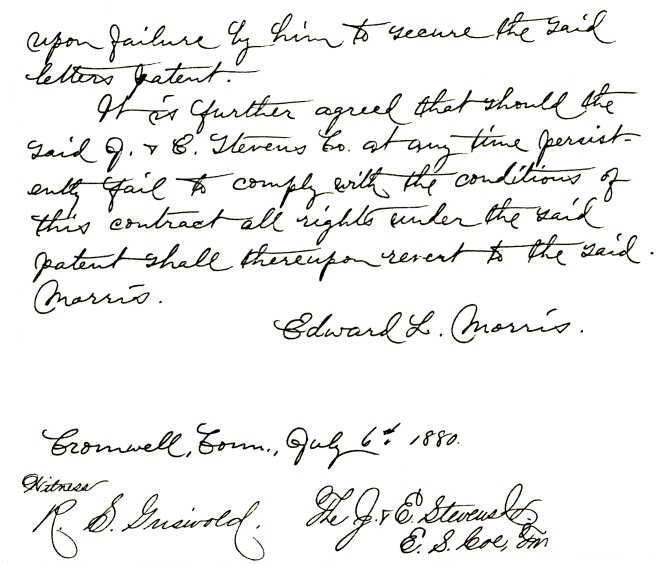 upon failure by him to secure the said
letters patent.
It is further agreed that should the
said J. & E. Stevens Co. at any time persist-
ently fail to comply with the conditions of
this contract all rights under the said
patent shall thereupon revert to the said
Morris.
Edward L. Morris.
Cromwell, Conn., July 6th 1880.
Witness
R. S. Griswold. The J. & E. Stevens Co.
E. S. Coe,